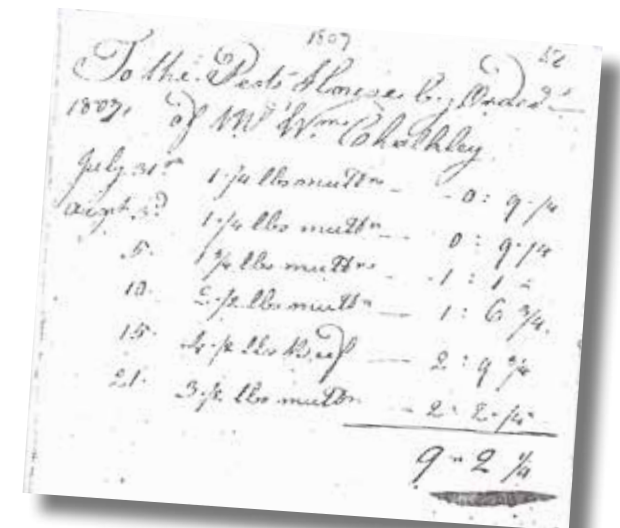 1807
To the Pest House by Order
1807. of Mr Wm Chalkley
July 31st 1 1/4 lbs muttn - 0 : 9 1/4
Augst 3d 1 1/4 lbs muttn - 0 : 9 1/4
5. 1 3/4 lbs muttn - 1 : 1 -
10. 2 1/2 lbs muttn - 1 : 6 3/4
15. 4 1/2 lbs Beef - 2 : 9 3/4
21. 3 1/2 lbs muttn - 2 : 2 1/4
9 - 2 1/4